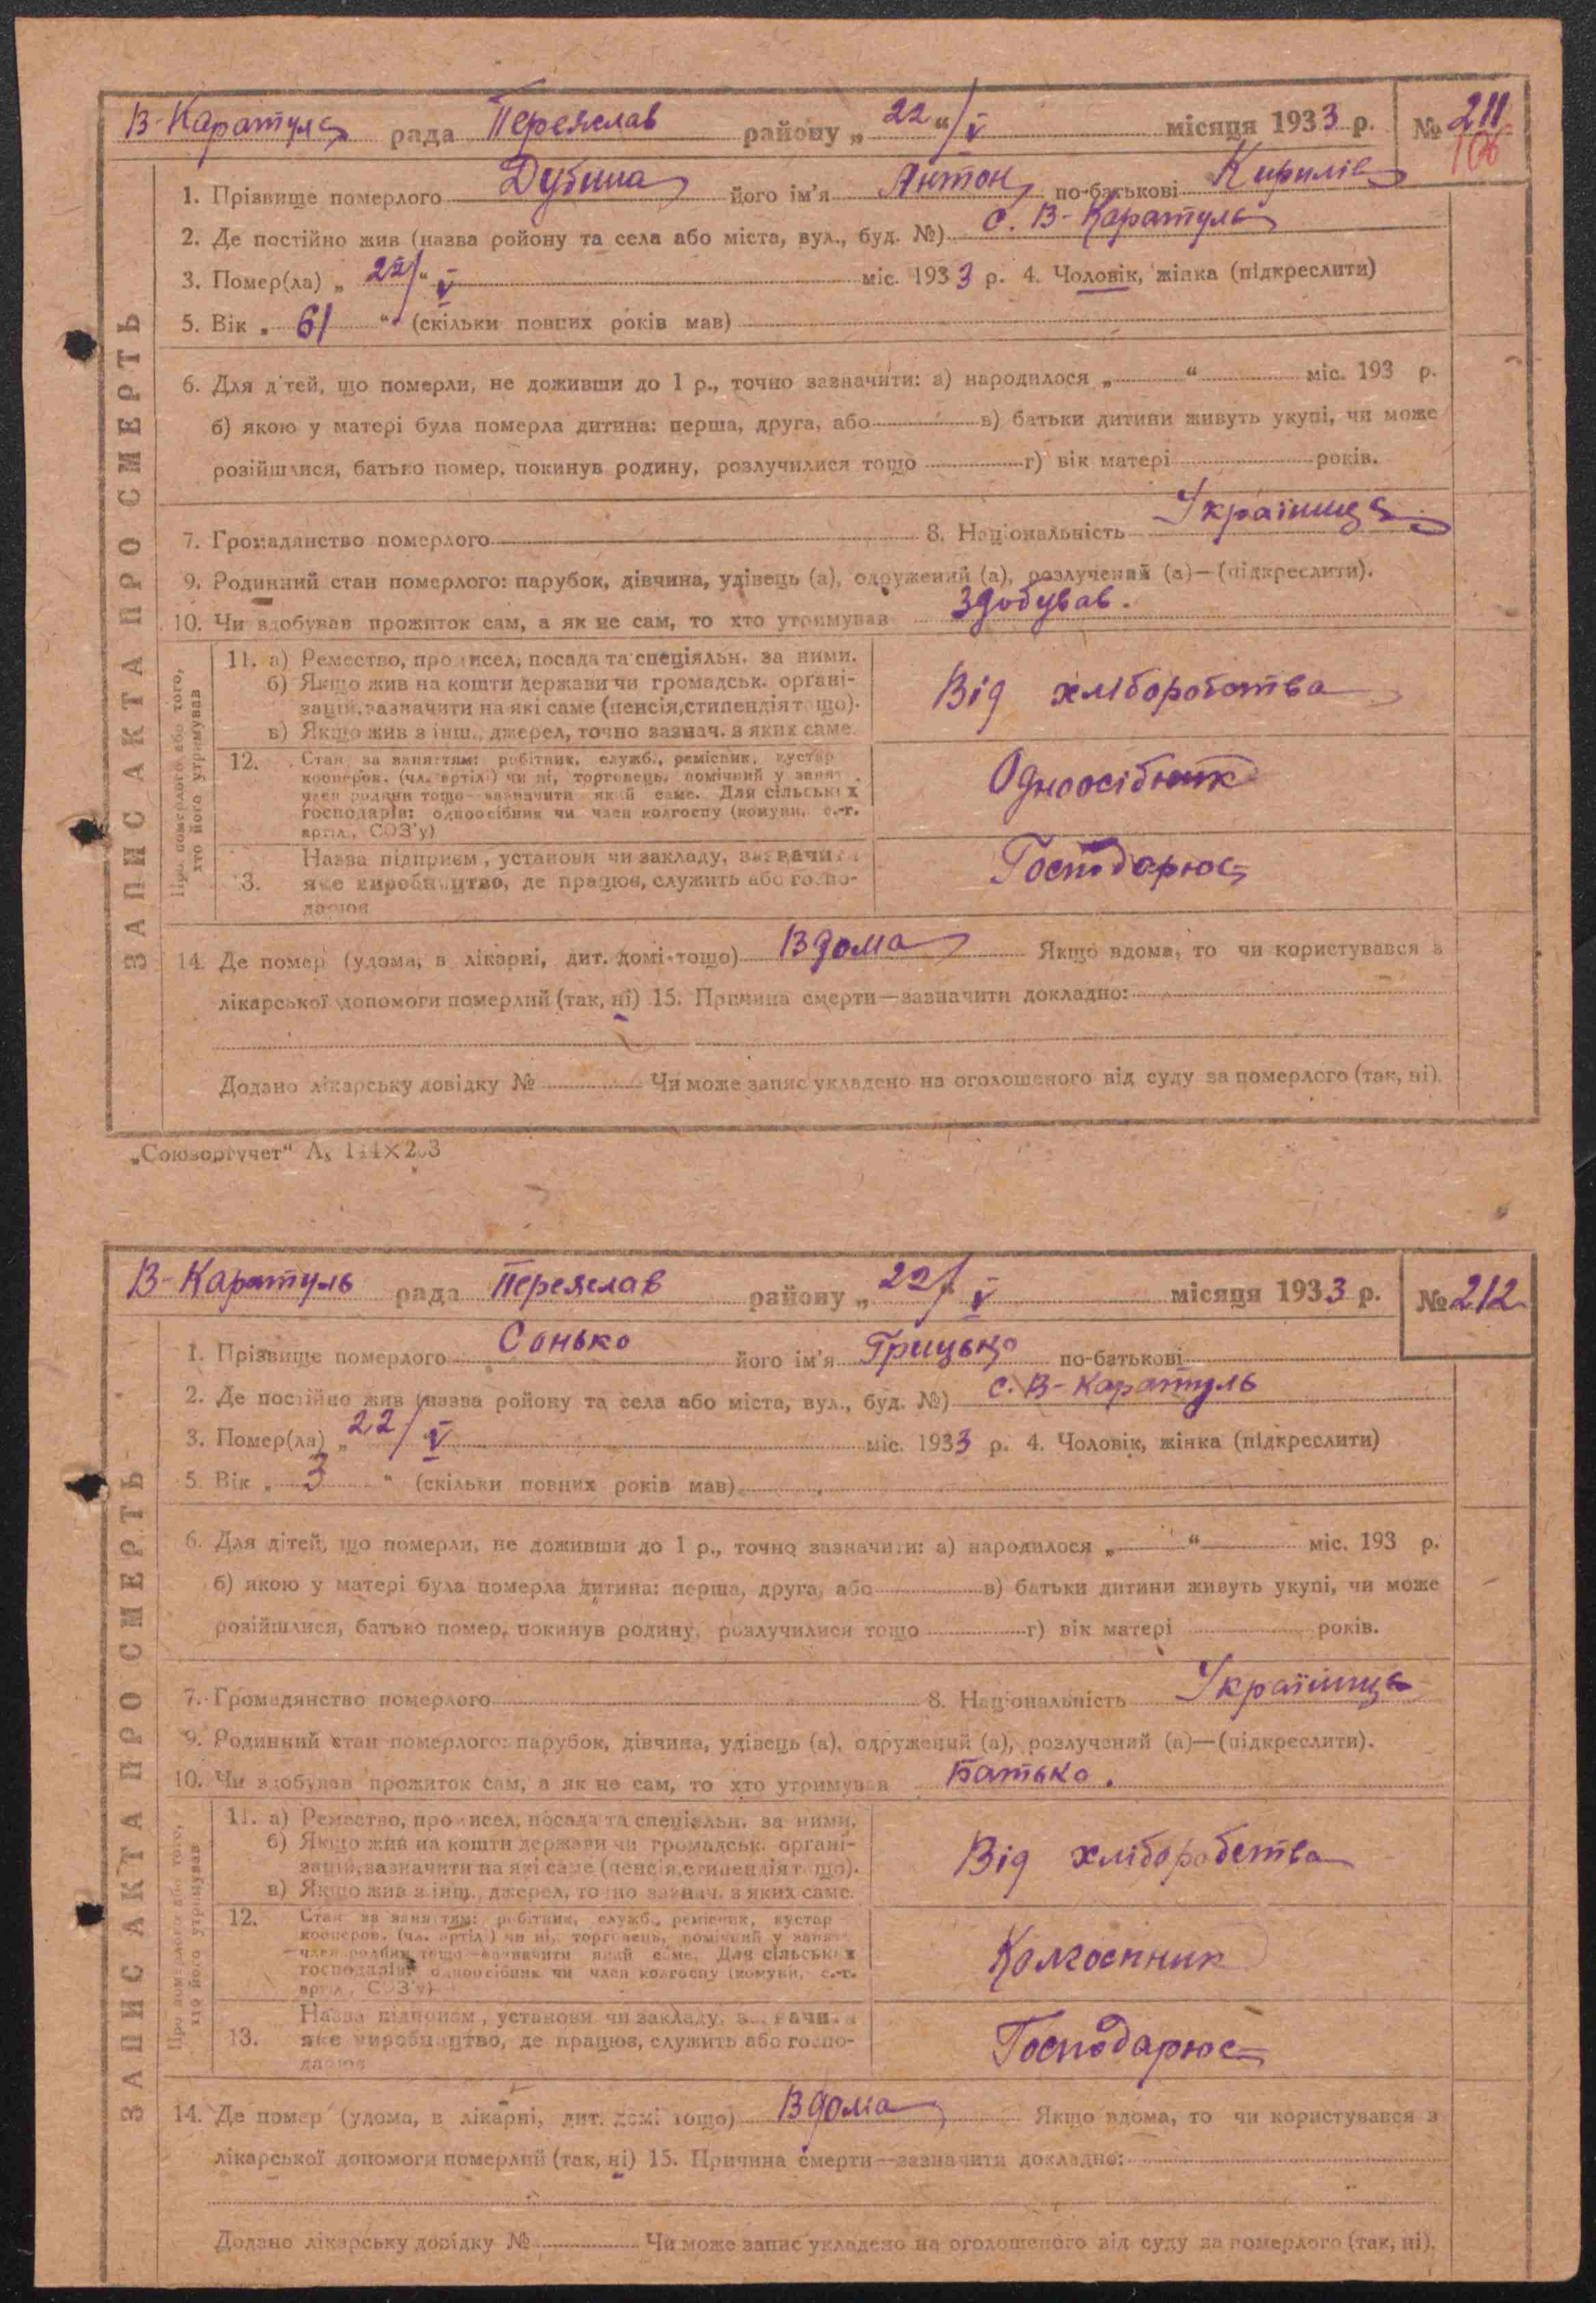 В-Каратуль рада Переяслав району „22“/V місяця 1933 р. № 211
106
1. Прізвище померлого Дубина його ім'я Антон по-батькові Кирилів
2. Де постійно жив (назваройону та села або міста, вул., буд. №) с. В-Каратуль
3. Помер(ла) „22/“ V міс. 1933 р. 4. Чоловік, жінка (підкреслити)
5. Вік „ 61 “ (скільки повних років мав)
6. Для дітей, що померли, не доживши до 1 р., точно зазначити: а) народилося „ “ міс. 193 р.
б) якою у матері була померла дитина: перша, друга, або в) батьки дитини живуть укупі, чи може
розійшлися, батько помер, покинув родину, розлучилися тощо г) вік матері років.
7. Громадянство померлого 8. Національність Українець
9. Родинний стан померлого: парубок, дівчина, удівець (а), одружений (а), розлучений (а)—(підкреслити).
10. Чи здобував прожиток сам, а як не сам, то хто утримував Здобував.
11. а) Ремество, промисел, посада та спеціяльн. за ними.
б) Якщо жив на кошти держави чи громадськ. органі-
зацій, зазначити на які саме (пенсія, стипендія тощо).
в) Якщо жив з інш., джерел, точно зазнач. з яких саме.
Від хліборобства
12. Стан за заняттям: робітник, служб., ремісник, кустар
кооперов. (чл. артілі) чи ні, торговець, помічний у занят.
член родини тощо—зазначити який саме. Для сільських
господарів: одноосібник чи член колгоспу (комуни, с.-г.
артіл., СОЗ'у)
Одноосібник
Назва підприєм., установи чи закладу, зазначити
13. яке виробництво, де працює, служить або госпо-
дарює
Господарює
Про померлого або того,
хто його утримував
14. Де помер (удома, в лікарні, дит. домі тощо) Вдома Якщо вдома, то чи користувався з
лікарської допомоги померлий (так, ні) 15. Причина смерти—зазначити докладно:
Додано лікарську довідку № Чи може запис укладено на оголошеного від суду за померлого (так, ні).
ЗАПИС АКТА ПРО СМЕРТЬ
„Союзоргучет“ 144×203
В-Каратуль рада Переяслав району „22/ V місяця 1933 р. № 212
1. Прізвище померлого Сонько його ім'я Грицько по-батькові
2. Де постійно жив (назва ройону та села або міста, вул., буд. №) с. В-Каратуль
3. Помер(ла) „22/ V міс. 1933 р. 4. Чоловік, жінка (підкреслити)
5. Вік „ 3 “ (скільки повних років мав)
6. Для дітей, що померли, не доживши до 1 р., точно зазначити: а) народилося „ “ міс. 193 р.
б) якою у матері була померла дитина: перша, друга, або в) батьки дитини живуть укупі, чи може
розійшлися, батько помер, покинув родину, розлучилися тощо г) вік матері років.
7. Громадянство померлого 8. Національність Українець
9. Родинний стан померлого: парубок, дівчина, удівець (а), одружений (а), розлучений (а)—(підкреслити).
10. Чи здобував прожиток сам, а як не сам, то хто утримував Батько.
11. а) Ремество, промисел, посада та спеціяльн. за ними.
б) Якщо жив на кошти держави чи громадськ. органі-
зацій, зазначити на які саме (пенсія, стипендія тощо).
в) Якщо жив з інш., джерел, точно зазнач. з яких саме.
Від хліборобства
12. Стан за заняттям: робітник, служб., ремісник, кустар
кооперов. (чл. артілі) чи ні, торговець, помічний у занят.
член родини тощо—зазначити який саме. Для сільських
господарів: одноосібник чи член колгоспу (комуни, с.-г.
артіл., СОЗ'у)
Колгоспник
Назва підприєм., установи чи закладу, зазначити
13. яке виробництво, де працює, служить або госпо-
дарює
Господарює
Про померлого або того,
хто його утримував
14. Де помер (удома, в лікарні, дит. домі тощо) Вдома Якщо вдома, то чи користувався з
лікарської допомоги померлий (так, ні) 15. Причина смерти—зазначити докладно:
Додано лікарську довідку № Чи може запис укладено на оголошеного від суду за померлого (так, ні).
ЗАПИС АКТА ПРО СМЕРТЬ